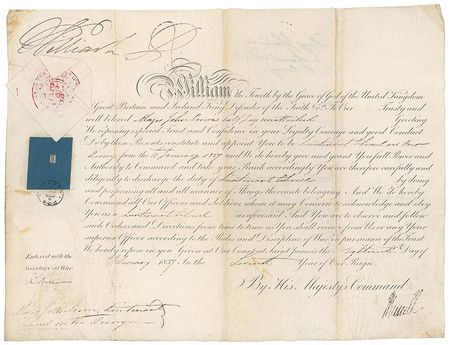 William R
William the Fourth by the Grace of God of the United Kingdom
Great Britain and Ireland King Defender of the Faith &c. To Our Trusty and
well beloved Major John half pay unattached Greeting
We reposing especial Trust and Confidence in your Loyalty Courage and good Conduct
Do by these Presents constitute and appoint You to be Lieutenant Colonel
from the 10 January 1837 And We do hereby give and grant You full Power and
Authority to Command and take your Rank accordingly You are therefore carefully and
diligently to discharge the duty of Lieutenant Colonel by doing
and performing all and all manner of Things thereunto belonging And We do hereby
Command all Our Officers and Soldiers whom it may Concern to acknowledge and obey
You as a Lieutenant Colonel as aforesaid And You are to observe and follow
such Orders and Directions from time to time as You shall receive from Us or any Your
superior Officer according to the Rules and Discipline of War in pursuance of the trust
We hereby repose in you Given at Our Court at Saint James's the Day of
February 1837 In the Seventh Year of Our Reign
Entered with the
Secretary at War
By His Majesty's Command
Major John Lieutenant